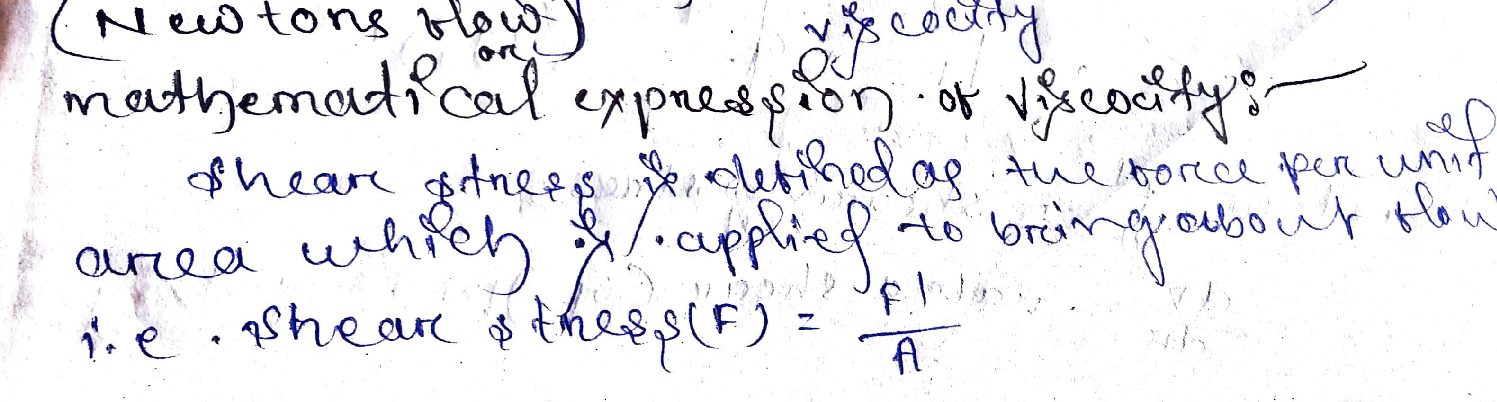 (Newtons flow) viscocity
or
mathematical expression of viscocity :-
Shear stress is defined as the force per unit
area which is applied to bring about flow
i.e. Shear stress (F) = F' / A